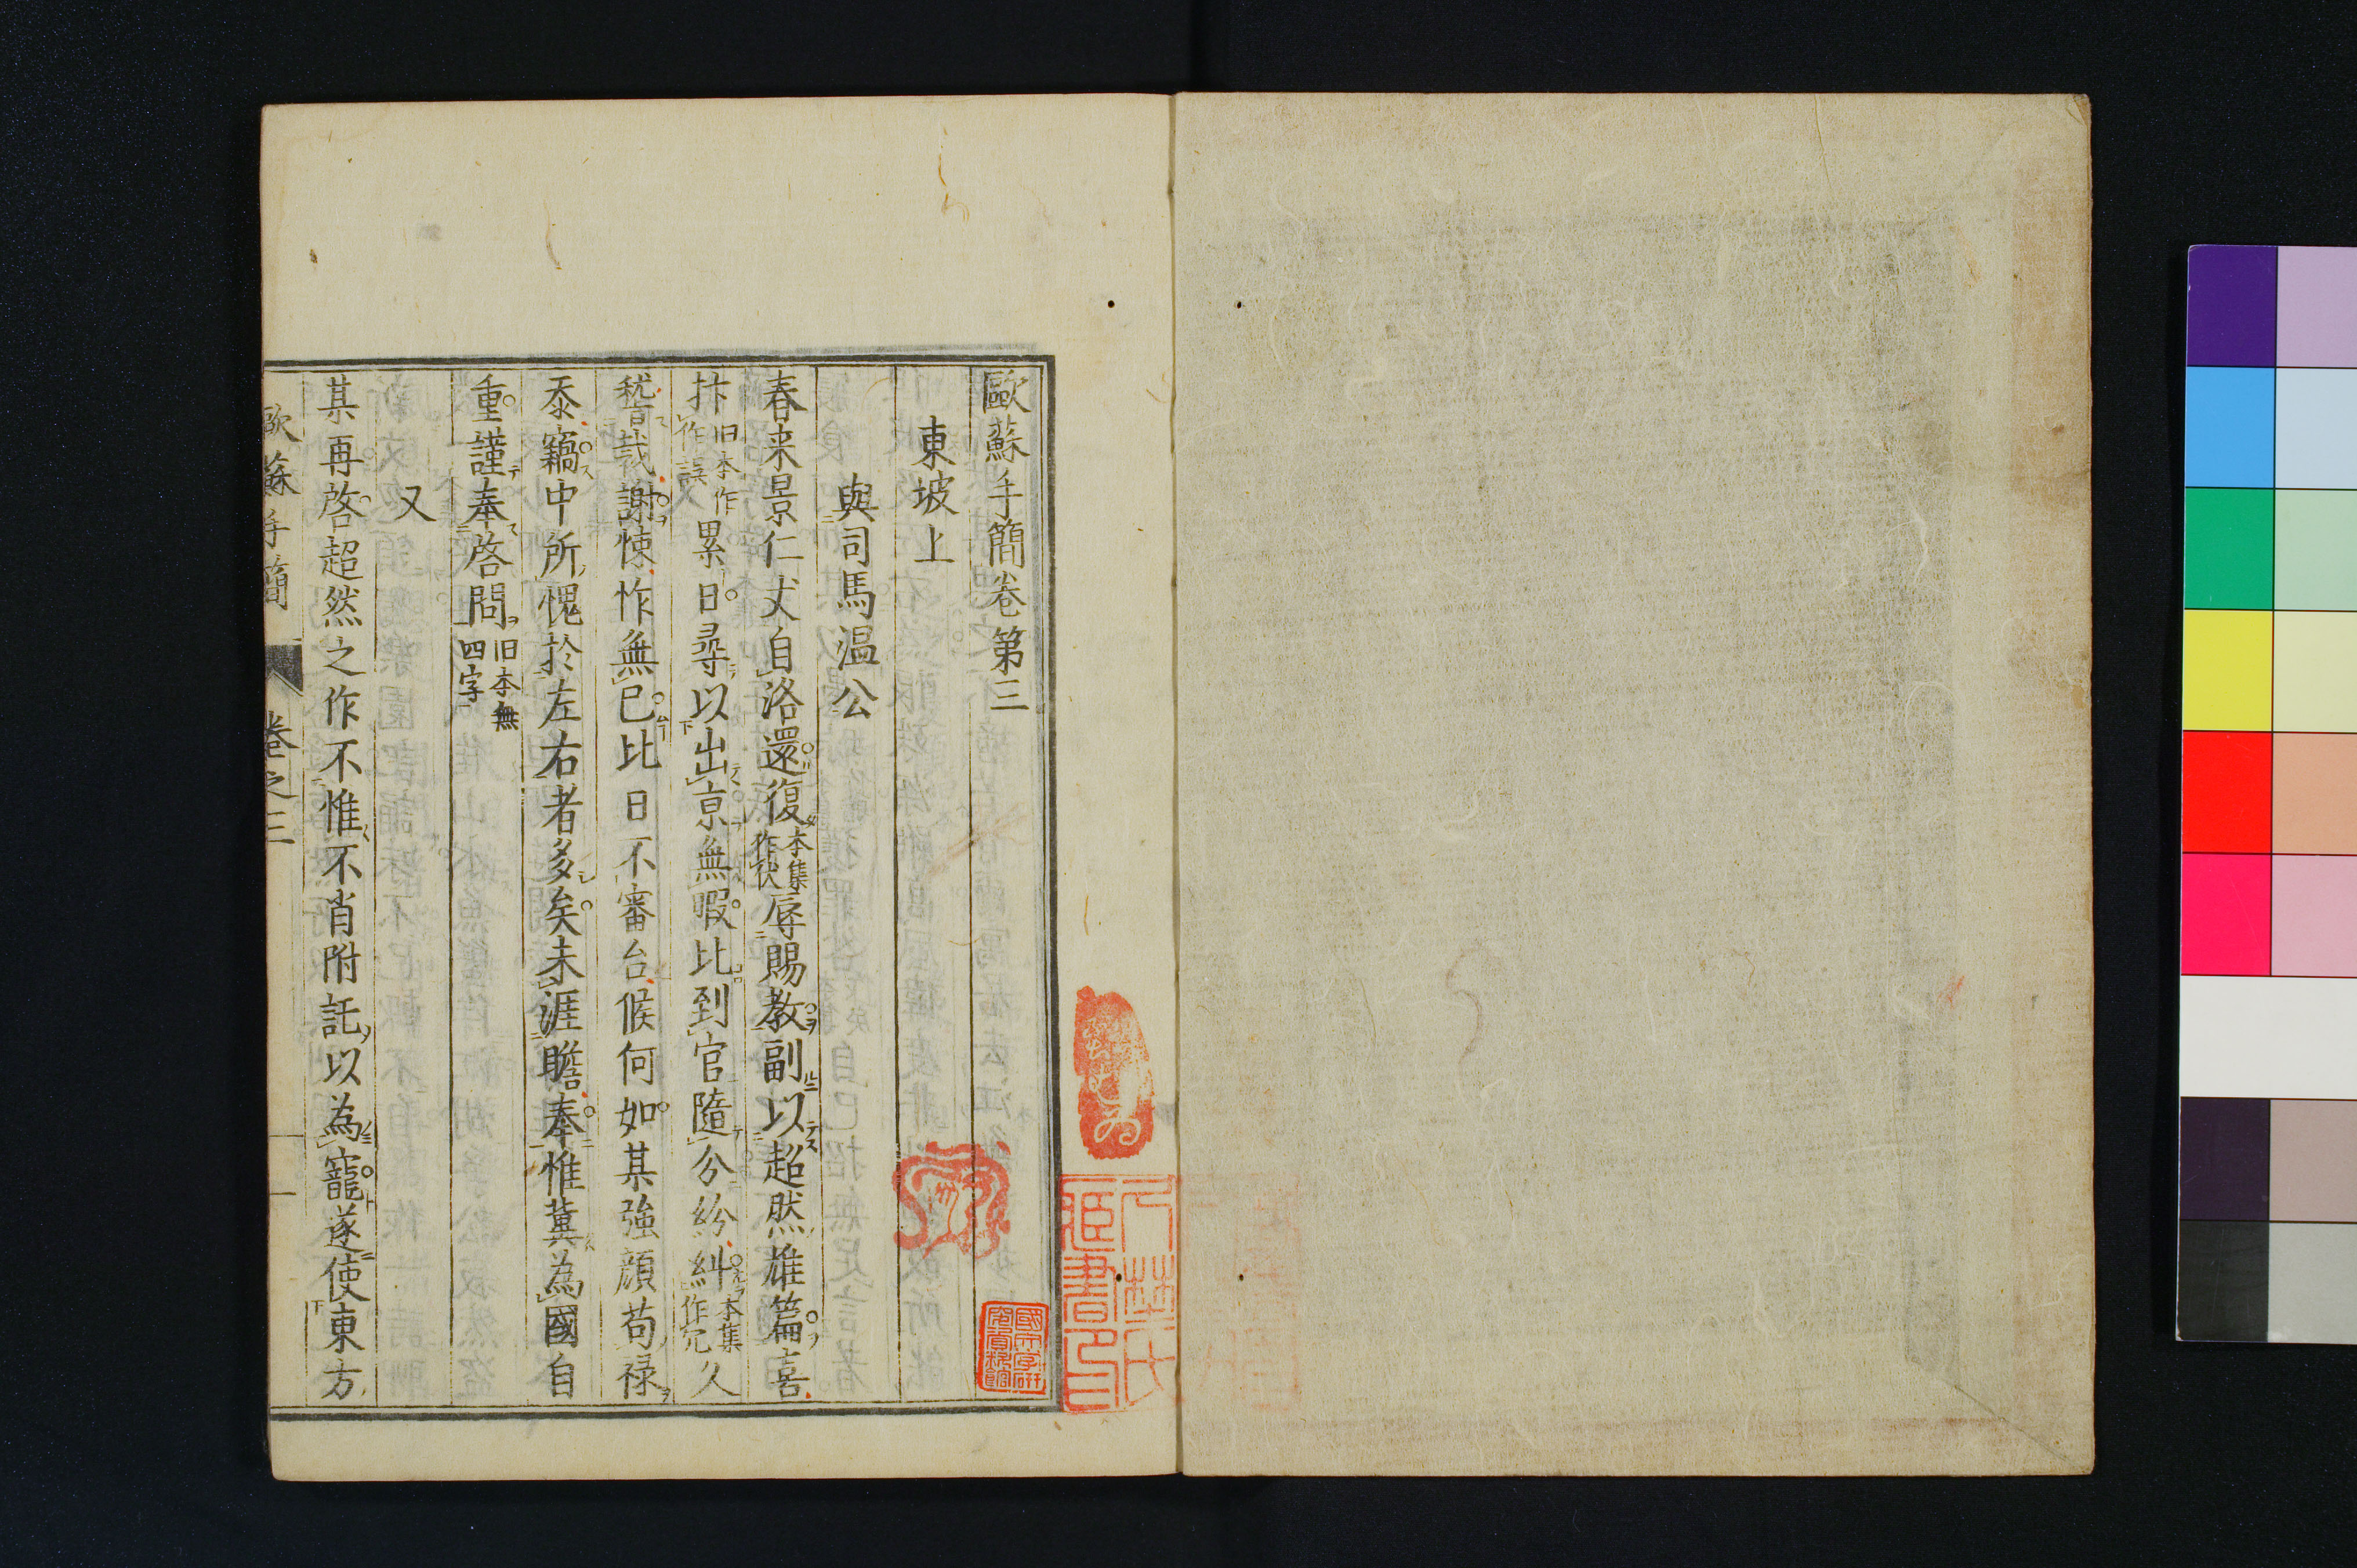 歐蘇手簡卷第三
東坡上
與司馬溫公
春来景仁丈自洛還復本集作伏辱賜教副以超然雄篇喜
抃旧本作作誤累日尋以出京無暇比到官隨分紛糾本集作冗久
稽裁謝悚怍無已比日不審台候何如某強顔苟禄
忝竊中所愧於左右者多矣未涯瞻奉惟冀為國自
重謹奉啓問旧本無四字
又
某再啓超然之作不惟不肖附託以為寵遂使東方
歐蘇手簡 卷之三 一